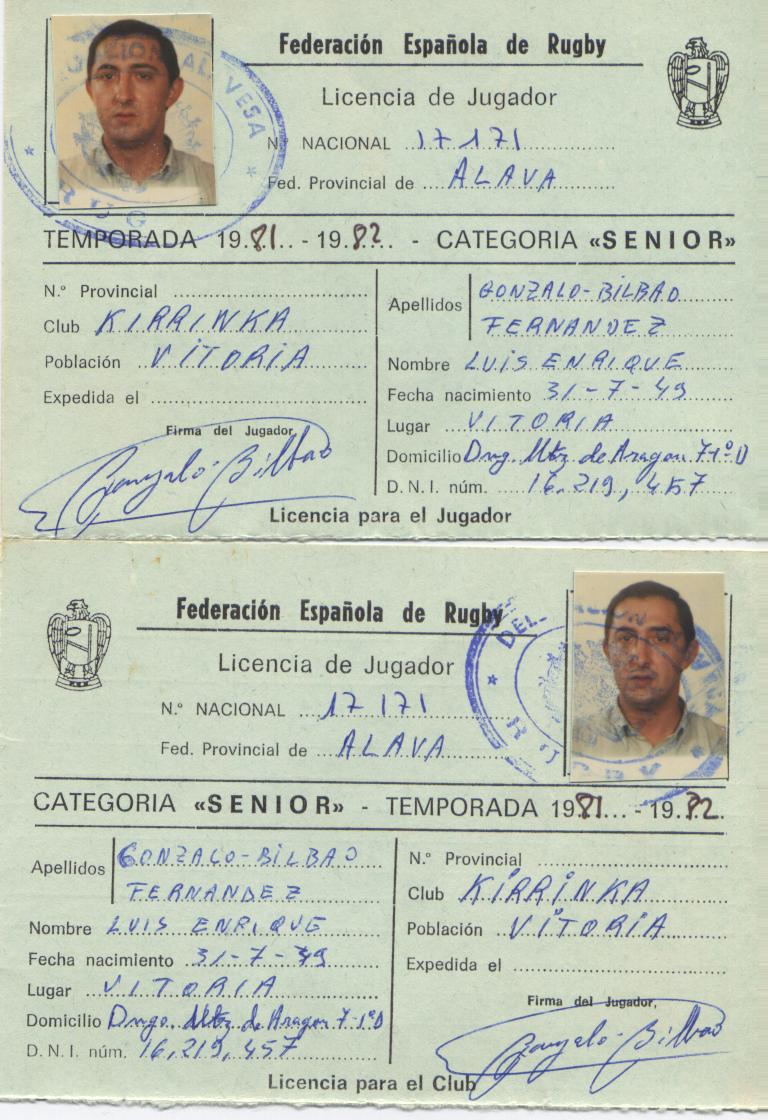 Federación Española de Rugby
Licencia de Jugador
N.º NACIONAL 17171
Fed. Provincial de ALAVA
TEMPORADA 19.81.. - 19.82... - CATEGORIA «SENIOR»
N.º Provincial
Club KIRRINKA
Población VITORIA
Expedida el
Firma del Jugador,
Gonzalo-Bilbao
Apellidos GONZALO-BILBAO
FERNANDEZ
Nombre LUIS ENRIQUE
Fecha nacimiento 31-7-49
Lugar VITORIA
Domicilio Dng. Mtz. de Aragon 7-1º D
D.N.I. núm. 16.219,457
Licencia para el Jugador
Federación Española de Rugby
Licencia de Jugador
N.º NACIONAL 17171
Fed. Provincial de ALAVA
CATEGORIA «SENIOR» - TEMPORADA 1981... - 19.82.
Apellidos GONZALO-BILBAO
FERNANDEZ
Nombre LUIS ENRIQUE
Fecha nacimiento 31-7-49
Lugar VITORIA
Domicilio Dngo. Mtz. de Aragon 7-1º D
D.N.I. núm. 16,219,457
N.º Provincial
Club KIRRINKA
Población VITORIA
Expedida el
Firma del Jugador,
Gonzalo-Bilbao
Licencia para el Club